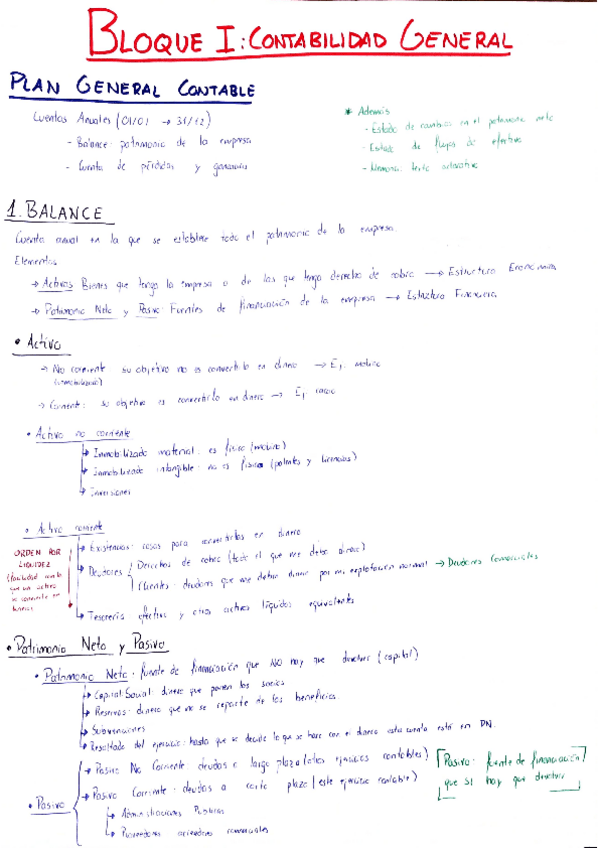 BLOQUE I: CONTABILIDAD GENERAL
PLAN GENERAL CONTABLE
Cuentas Anuales (01/01 → 31/12)
- Balance: patrimonio de la empresa
- Cuenta de pérdidas y ganancias
* Además
- Estado de cambios en el patrimonio neto
- Estado de flujos de efectivo
- Memoria: texto aclarativo
1. BALANCE
Cuenta anual en la que se establece todo el patrimonio de la empresa.
Elementos
→ Activos Bienes que tenga la empresa o de los que tenga derecho de cobro → Estructura Económica
→ Patrimonio Neto y Pasivo: Fuentes de financiación de la empresa → Estructura Financiera
• Activo
→ No corriente su objetivo no es convertirlo en dinero → Ej. molino
(inmovilizado)
→ Corriente: su objetivo es convertirlo en dinero → Ej
• Activo no corriente
→ Inmovilizado material: es físico (molino)
→ Inmovilizado intangible: no es físico (patentes y licencias)
→ Inversiones
• Activo corriente
→ Existencias: cosas para convertirlas en dinero
→ Deudores Derechos de cobro (todo el que me debe dinero)
Clientes: deudores que me deben dinero por mi explotación normal → Deudores Comerciales
→ Tesorería efectivo y otros activos líquidos equivalentes
ORDEN POR
LIQUIDEZ
(facilidad con la
que un activo
se convierte en
• Patrimonio Neto y Pasivo
• Patrimonio Neto: fuente de financiación que NO hay que devolver (capital)
→ Capital Social: dinero que ponen los socios
→ Reservas: dinero que no se reparte de los beneficios.
→ Subvenciones
→ Resultado del ejercicio: hasta que se decide lo que se hace con el dinero esta cuenta está en PN.
• Pasivo
→ Pasivo No Corriente: deudas a largo plazo (otros ejercicios contables)
→ Pasivo Corriente: deudas a corto plazo (este ejercicio contable)
→ Administraciones Públicas
→ Proveedores acreedores comerciales
Pasivo: fuente de financiación
que sí hay que devolver